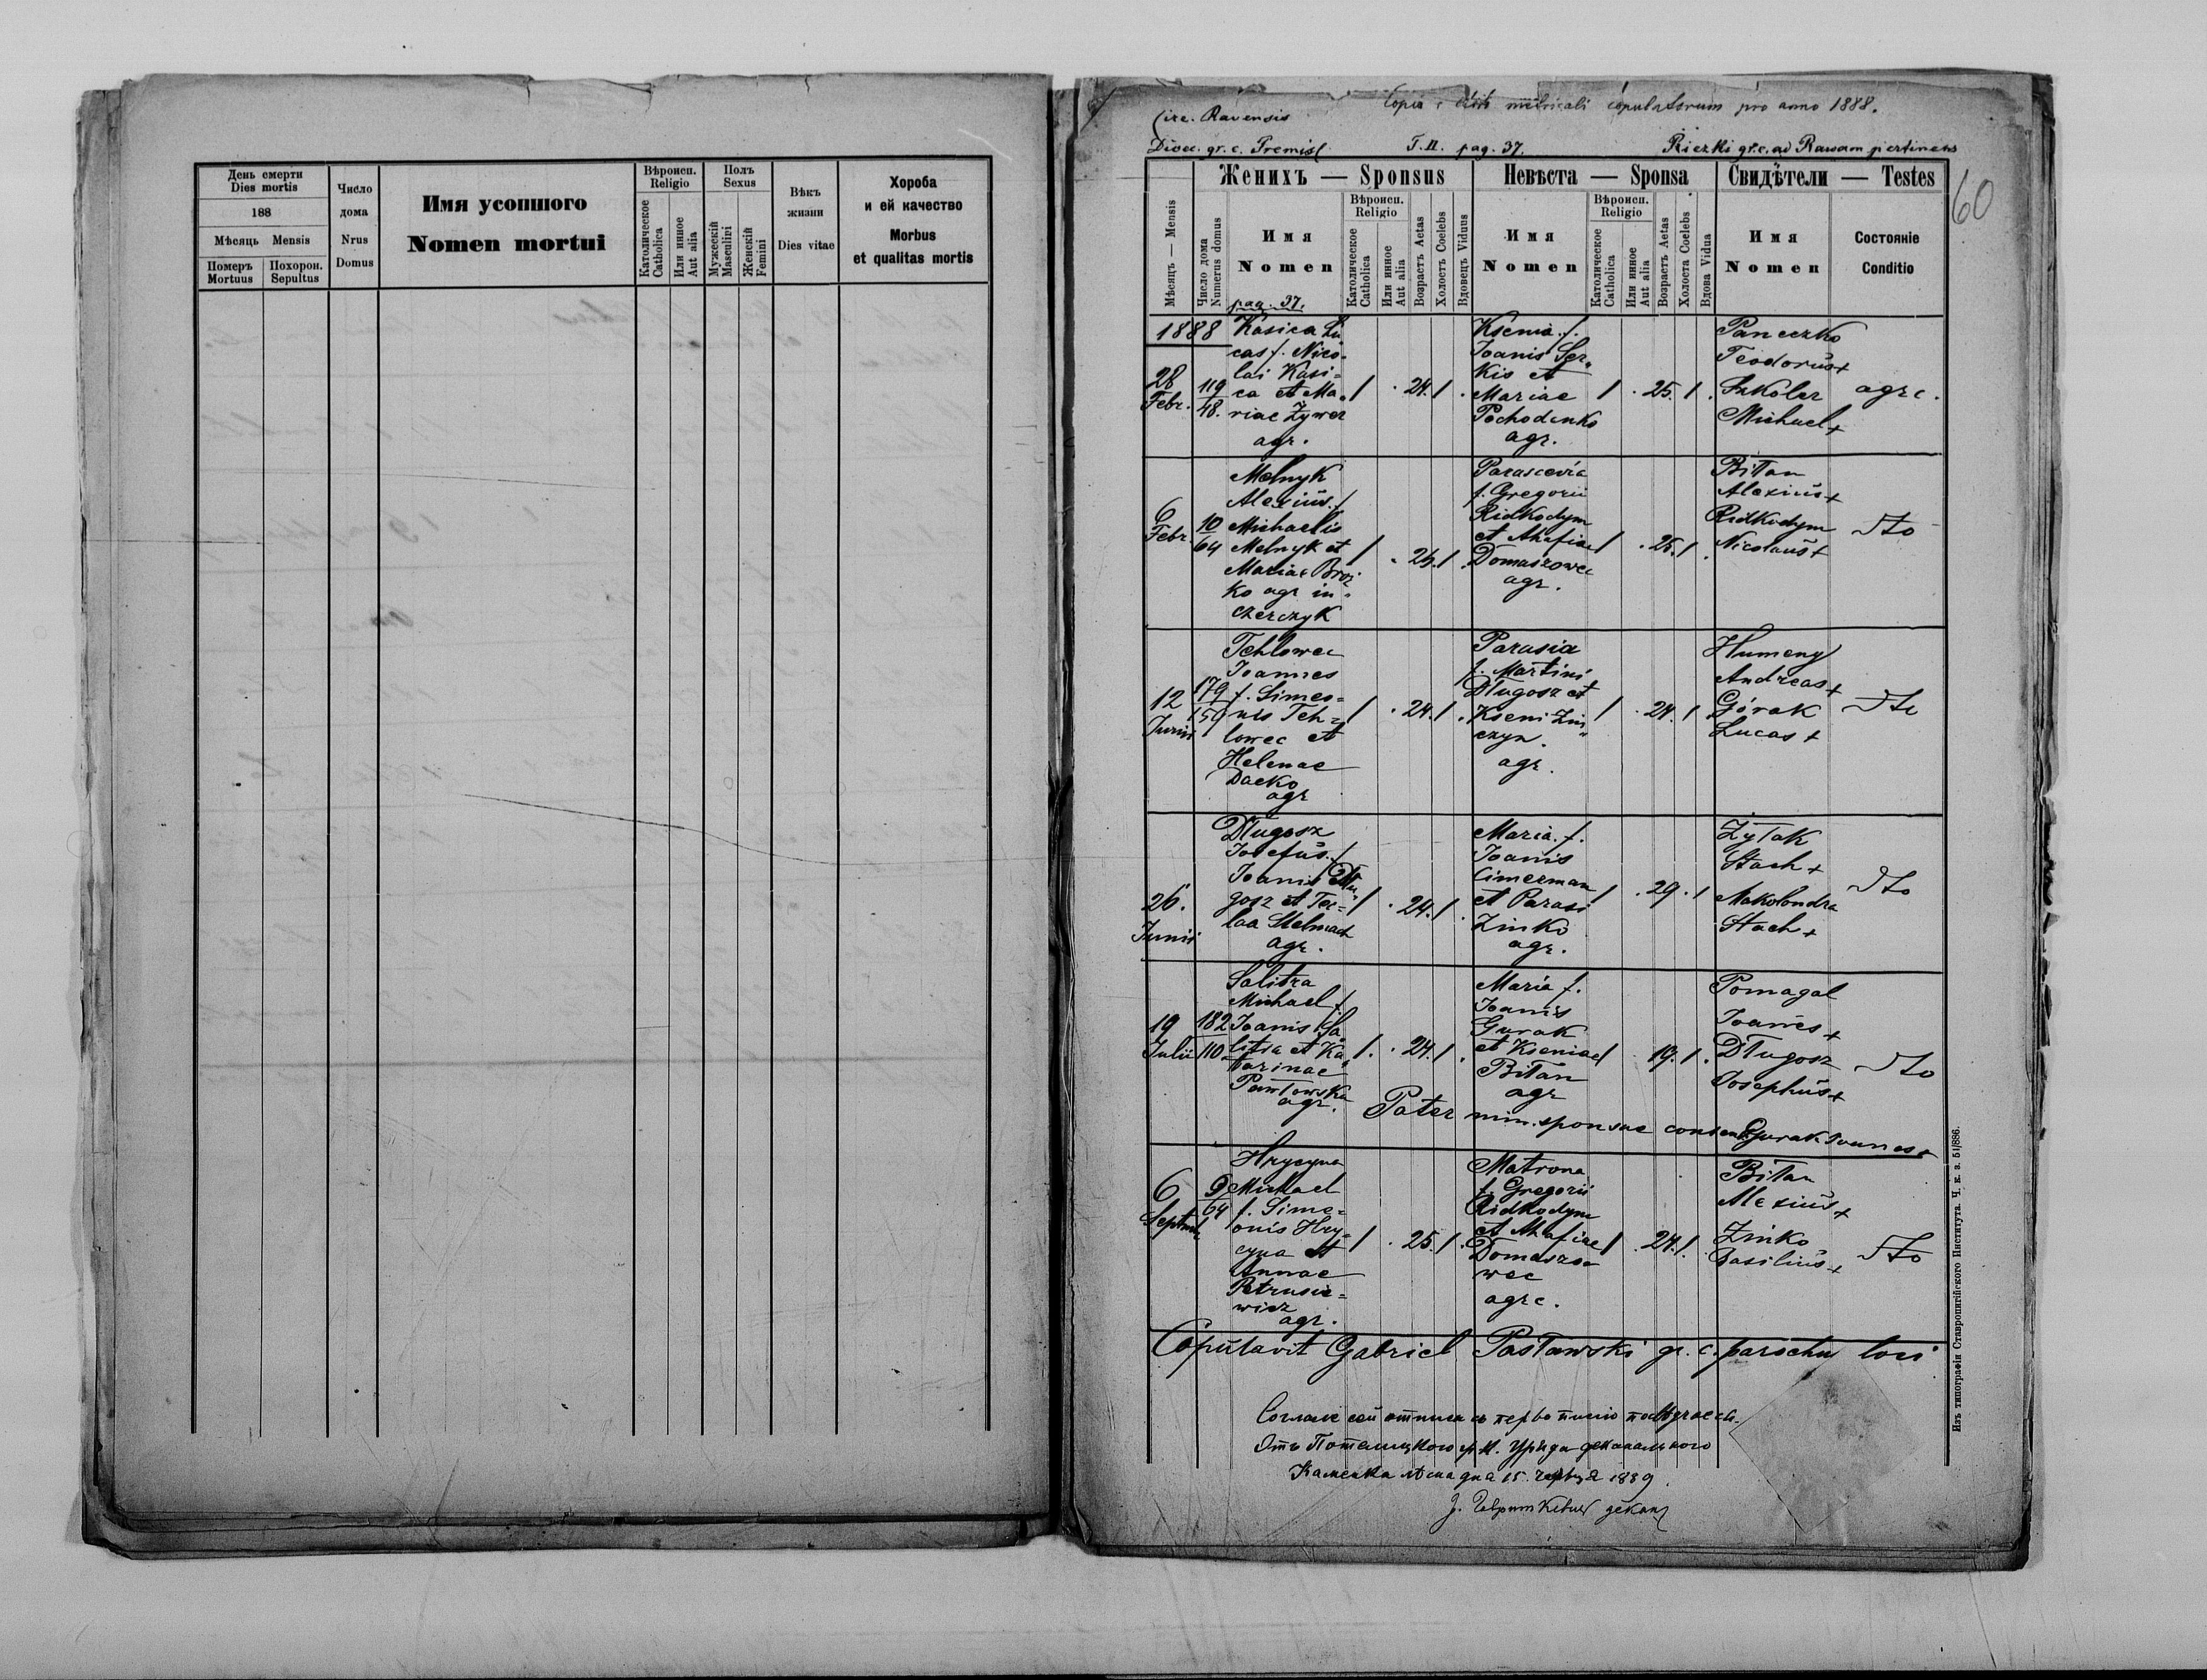 День смерти
Dies mortis
188
Мѣсяць Mensis
Померъ
Mortuus
Похорон.
Sepultus
Число
дома
Nrus
Domus
Имя усопшого
Nomen mortui
Вѣроисп.
Religio
Католическое
Catholica
Или инное
Aut alia
Полъ
Sexus
Мужескій
Masculini
Женскій
Femini
Вѣкъ
жизни
Dies vitae
Хороба
и ей качество
Morbus
et qualitas mortis
Copia e libri metricali copulatorum pro anno 1888.
Circ. Ravensis
Dioec. gr. c. Premisl T. II. pag. 37. Rieczki gr. c. ad Rawam pertinens
60
Женихъ — Sponsus
Невѣста — Sponsa
Свидѣтели — Testes
Мѣсяць — Mensis
Число дома
Numerus domus
Имя
Nomen
Вѣроисп.
Religio
Католическое
Catholica
Или инное
Aut alia
Возрастъ Aetas
Холостъ Coelebs
Вдовецъ Viduus
Имя
Nomen
Вѣроисп.
Religio
Католическое
Catholica
Или инное
Aut alia
Возрастъ Aetas
Холоста Coelebs
Вдова Vidua
Имя
Nomen
Состояніе
Conditio
pag. 37.
1888
28
Febr.
119
48.
Kasica Lu
cas f. Nico-
lai Kasi=
ca et Ma-
riae Żywer
agr.
1 . 24. 1 .
Ksenia f.
Joanis Ser-
kis et
Mariae
Pochodenko
agr.
1 . 25. 1 .
Paneczko
Teodorus +
Szkolar
Michael +
agrc.
6
Febr.
10
64
Melnyk
Alexius f.
Michaelis
Melnyk et
Mariae Broz
ko agr in-
czerczyk
1 . 25. 1 .
Parascevia
f. Gregorii
Ridkodym
et Ahafiae
Domaszowec
agr.
1 . 25. 1 .
Bitan
Alexius +
Ridkodym
Nicolaus +
dto
12
Junii
179
150
Tehlowec
Joannes
f. Simeo=
nis Teh=
lowec et
Helenae
Dacko
agr
1 . 24. 1 .
Parasia
f. Martini
Długosz et
Kseni Zin
czyn.
agr.
1 . 24. 1 .
Humeny
Andreas +
Górak
Lucas +
dto
26.
Junii
Długosz
Josefus f.
Joanis Dłu
gosz et Tec=
laa Stelmach
agr.
1 . 24. 1 .
Maria f.
Joanis
Cimerman
et Parasi
Zinko
agr.
1 . 29. 1
Żyłak
Stach +
Makolondra
Stach +
dto
19
Julii
182
110
Salitra
Michael f.
Joanis Sa
litra et Ka
tarinae
Pawłowska
agr.
1. . 24. 1 .
Maria f.
Joanis
Gurak
et Kseniae
Bitan
agr
1 19. 1 .
Pomagal
Joannes +
Długosz
Josephus +
dto
Pater min. sponsae consens Gurak Joannes +
6
Septemb.
9
64
Hrycyna
Michael
f. Sime=
onis Hry-
cyna et
Annae
Petrusie=
wicz
agr.
1 . 25. 1 .
Matrona
f. Gregorii
Ridkodym
et Ahafiae
Domaszo-
wec
agrc.
1 . 24. 1.
Bitan
Alexius +
Zinko
Basilius +
dto
Copulavit Gabriel Pasławski gr. c. parochus loci
Отъ Потелицкого гр. к. уряда деканального
Каменка 15. 1889.
декан
Изъ типографіи Ставропигійского Института. Ч. к. а. 51/886.